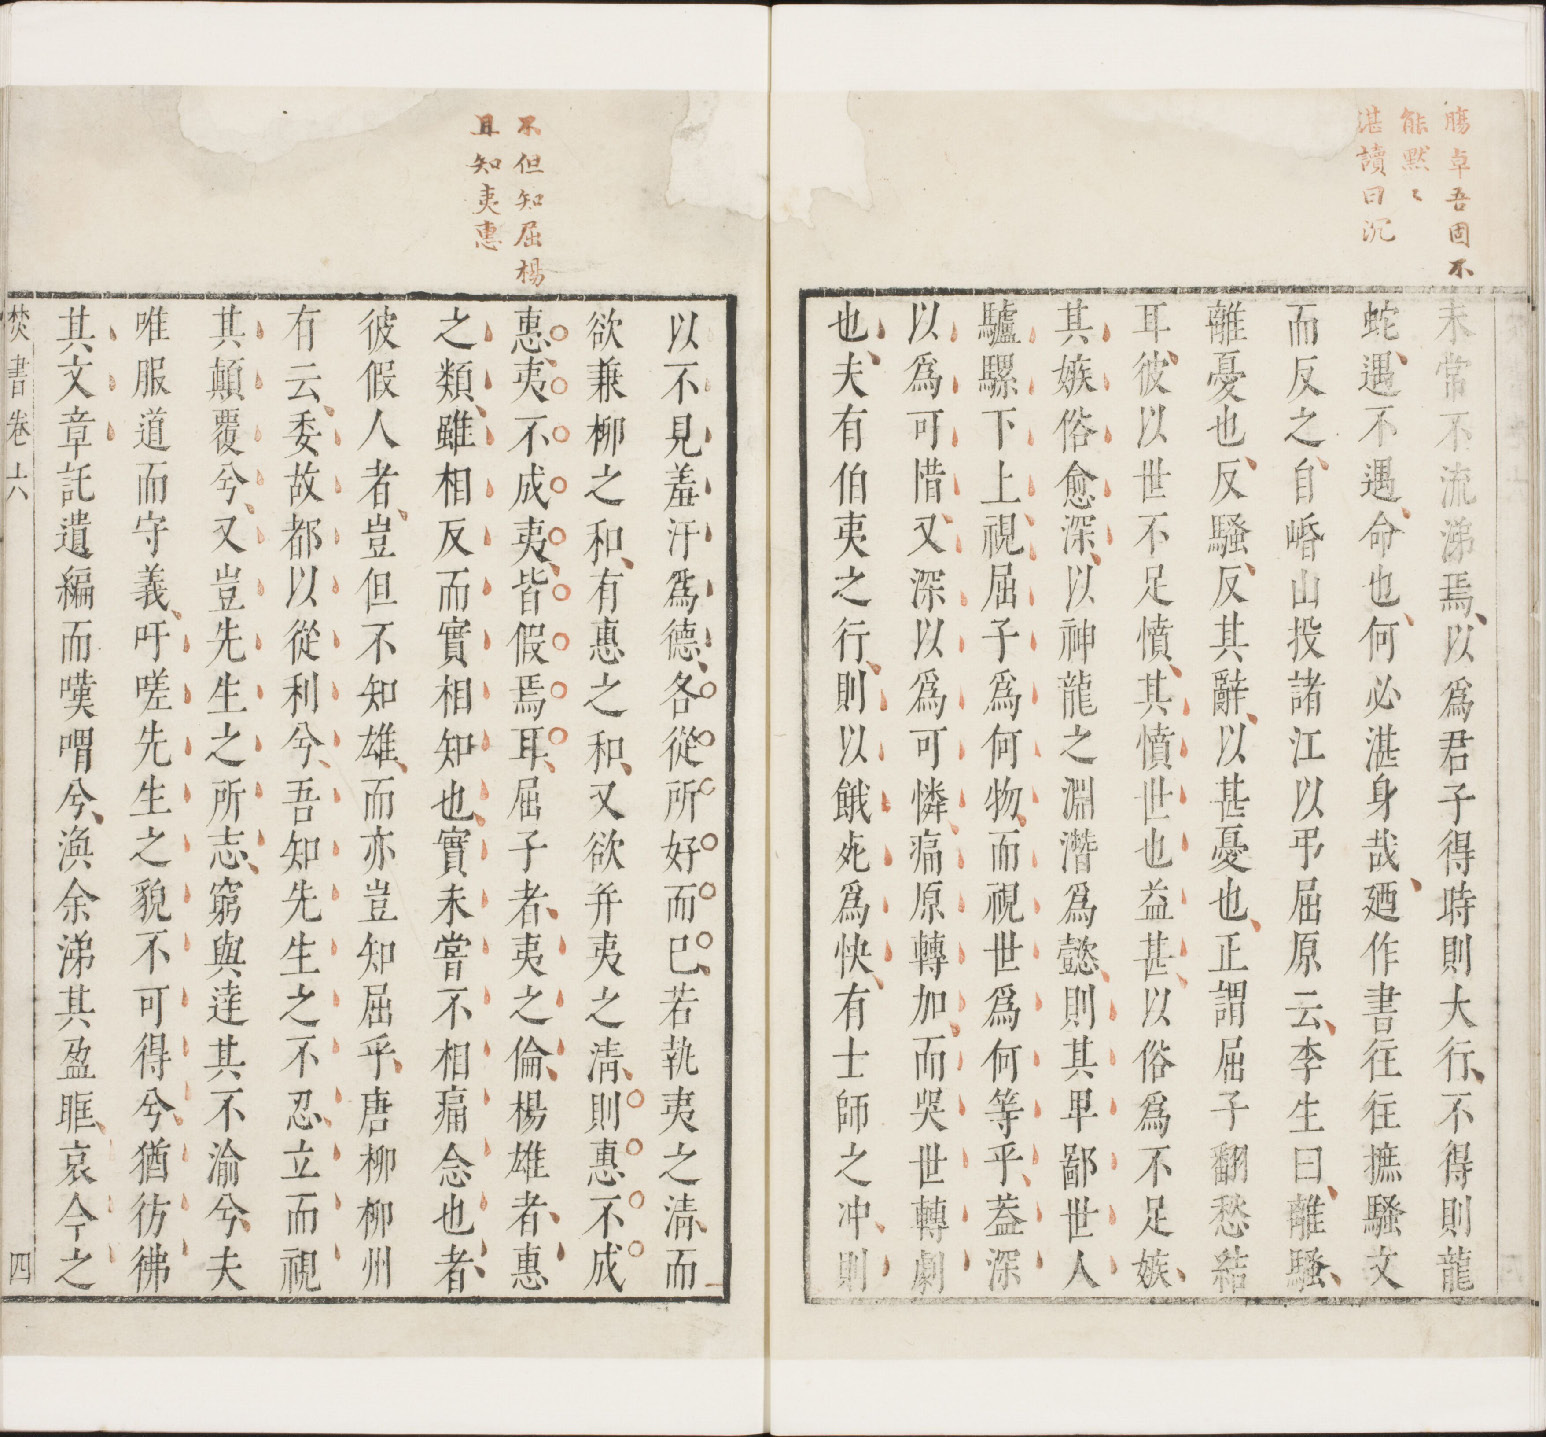 腸卓吾固不
能黙〻
湛讀曰沉
未常不流涕焉以爲君子得時則大行不得則龍
蛇遇不遇命也何必湛身哉廼作書往往摭騷文
而反之自㟭山投諸江以弔屈原云李生曰離騷
離憂也反騷反其辭以甚憂也正謂屈子翻愁結
耳彼以世不足憤其憤世也益甚以俗爲不足嫉
其嫉俗愈深以神龍之淵潛爲懿則其卑鄙世人
驢騾下上視屈子爲何物而視世爲何等乎葢深
以爲可惜又深以爲可憐痛原轉加而哭世轉劇
也夫有伯夷之行則以餓死爲快有士師之冲則
不但知屈楊
且知夷惠
以不見羞汙爲德各從所好而已若執夷之清而
欲兼柳之和有惠之和又欲并夷之淸則惠不成
惠夷不成夷皆假焉耳屈子者夷之倫楊雄者惠
之類雖相反而實相知也實未嘗不相痛念也者
彼假人者豈但不知雄而亦豈知屈乎唐柳柳州
有云委故都以從利兮吾知先生之不忍立而視
其顛覆兮又豈先生之所志窮與逹其不渝兮夫
唯服道而守義吁嗟先生之貌不可得兮猶彷彿
其文章託遺編而嘆喟兮渙余涕其盈眶哀今之
焚書卷六 四